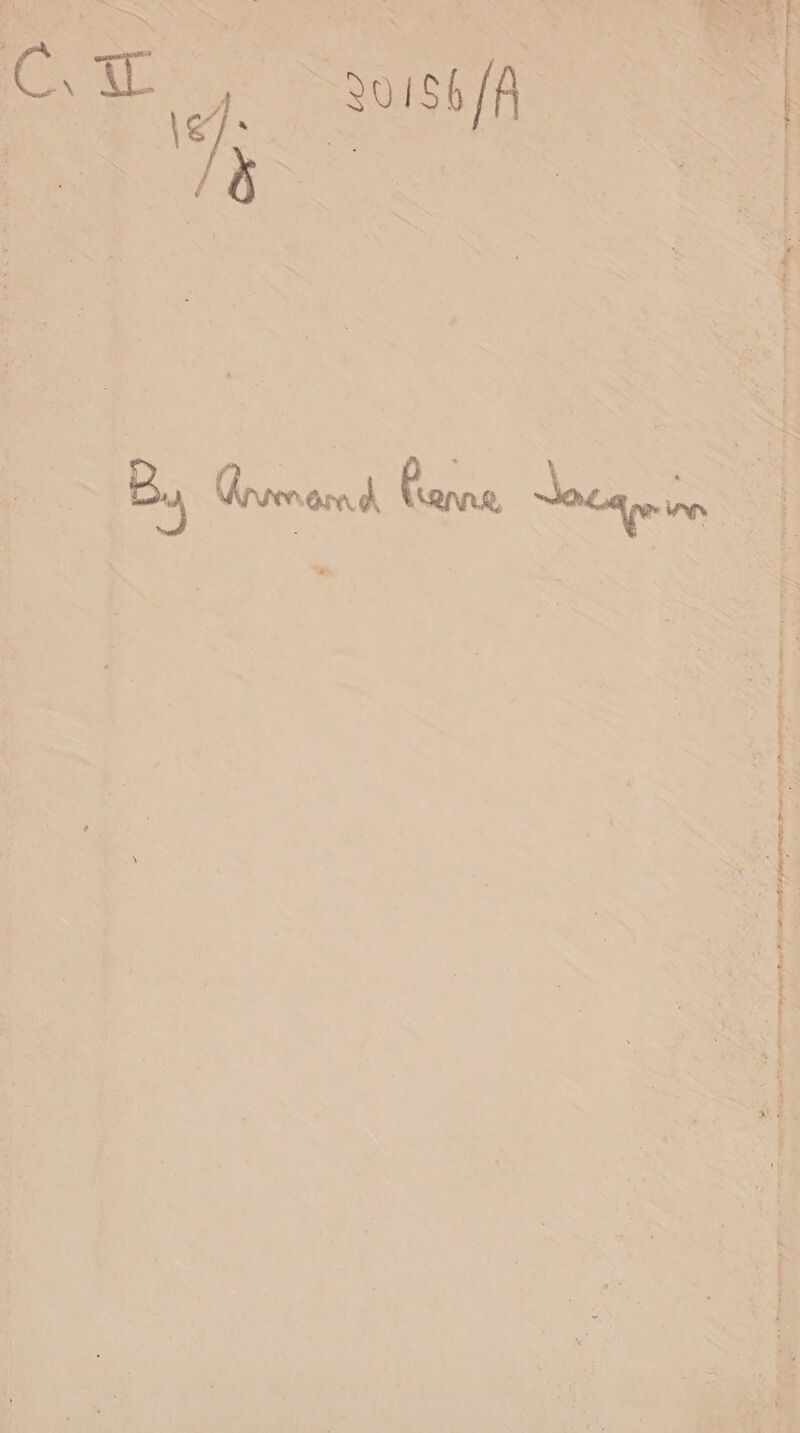 C. II 20156/A
18/.
/8
By Armand Pierre Jacquin